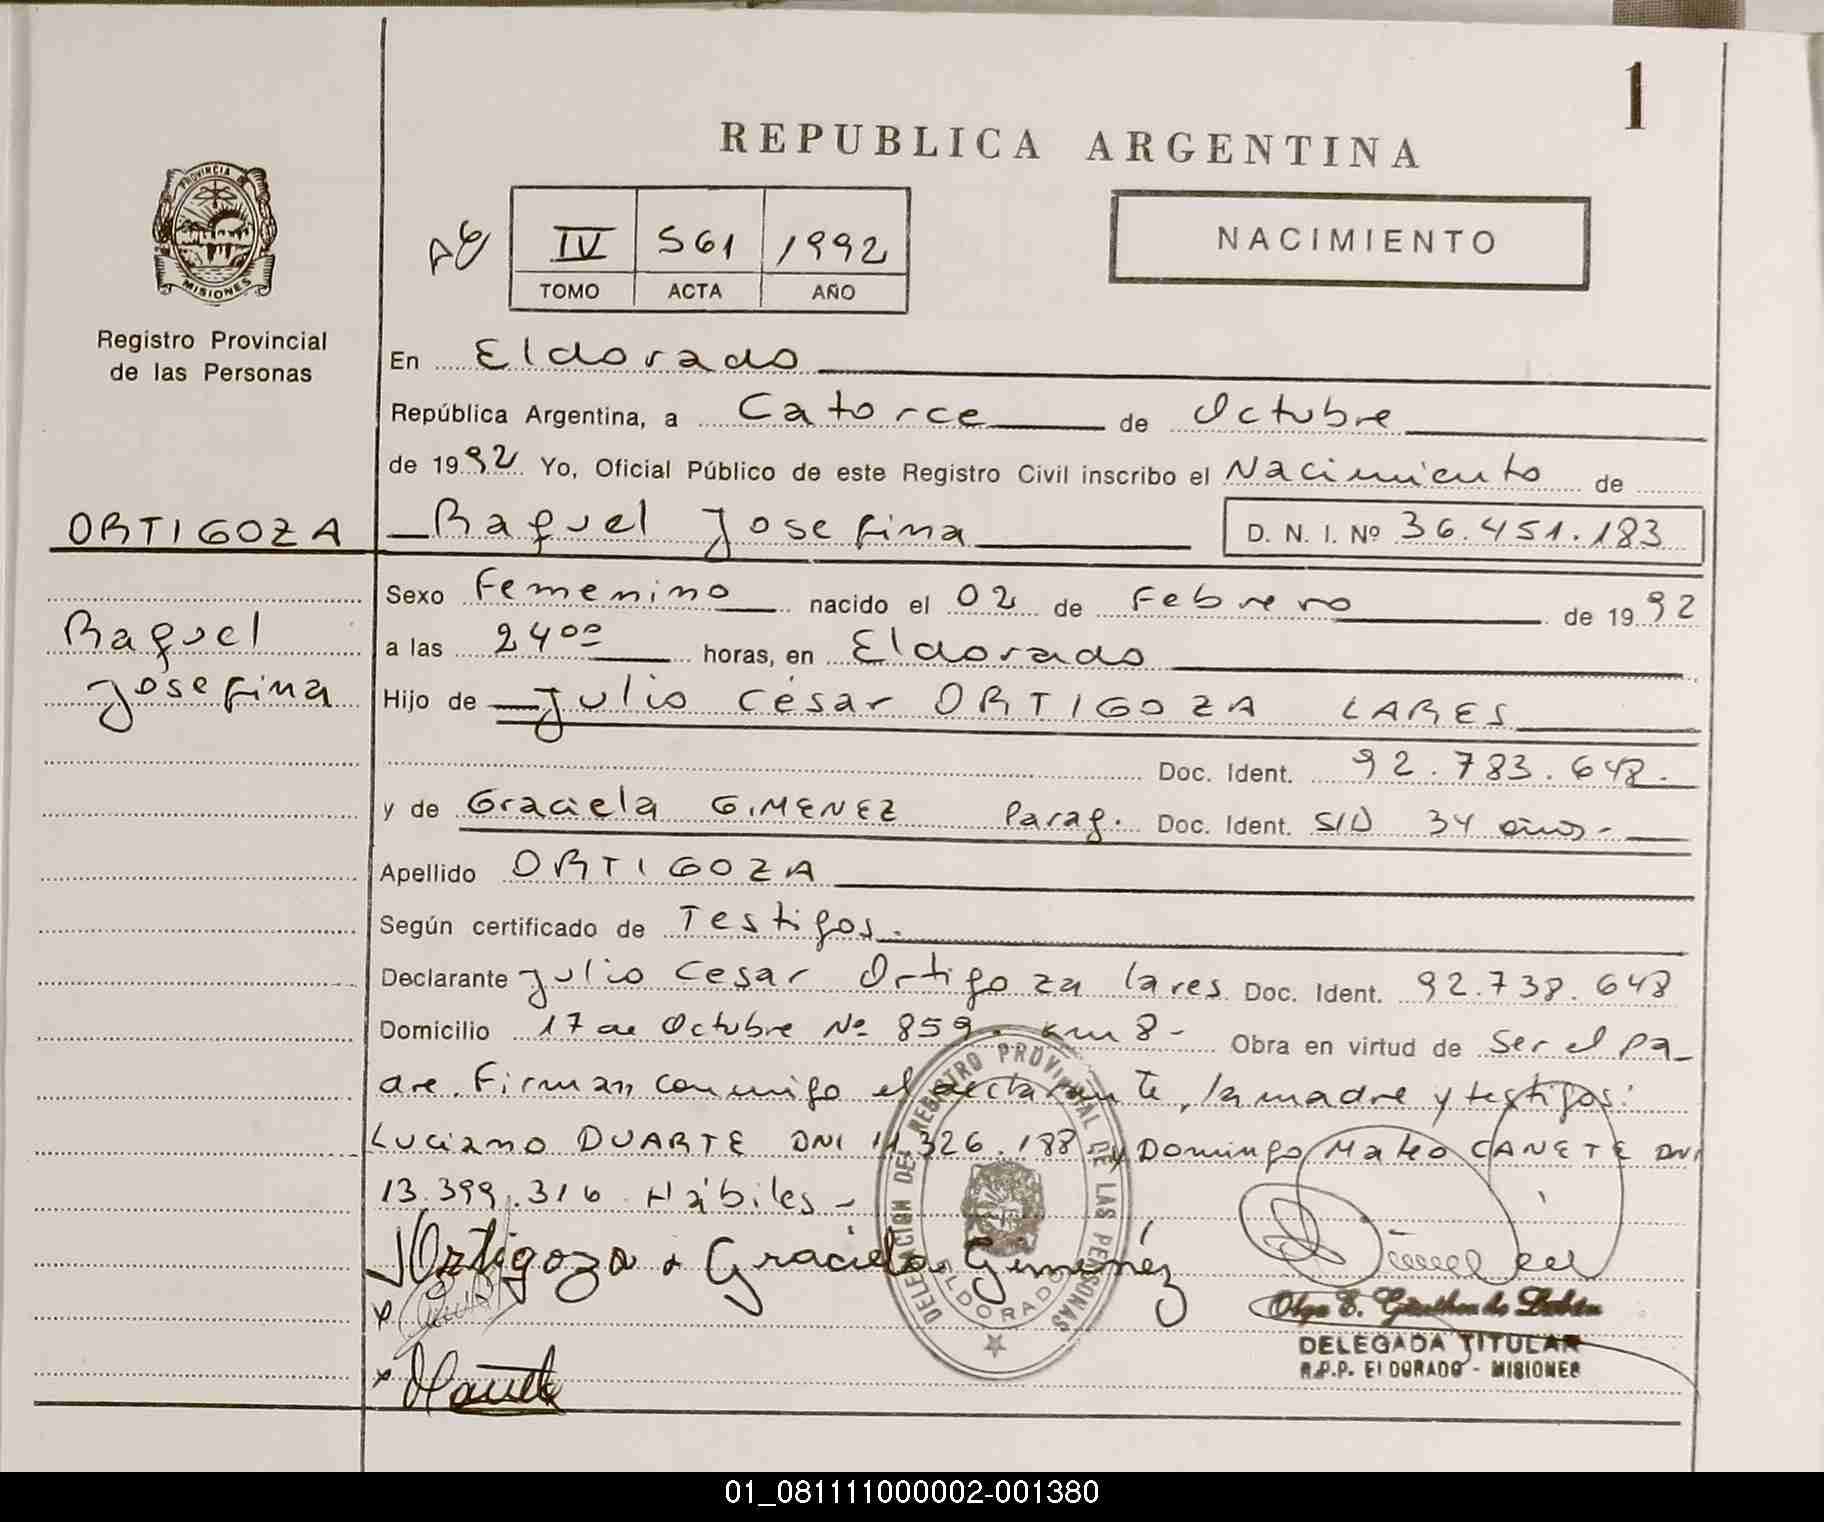 1
REPUBLICA ARGENTINA
PROVINCIA DE
MISIONES
Registro Provincial
de las Personas
IV 561 1992
TOMO ACTA AÑO
NACIMIENTO
En Eldorado
República Argentina, a Catorce de Octubre
de 1992 Yo, Oficial Público de este Registro Civil inscribo el Nacimiento de
ORTIGOZA Raquel Josefina D. N. I. Nº 36.451.183
Raquel
Josefina
Sexo Femenino nacido el 02 de Febrero de 1992
a las 24ºº horas, en Eldorado
Hijo de Julio César ORTIGOZA LARES
Doc. Ident. 92.783.648.
y de Graciela GIMENEZ Parag. Doc. Ident. S/D 34 años-
Apellido ORTIGOZA
Según certificado de Testigos.
Declarante Julio Cesar Ortigoza lares Doc. Ident. 92.738.648
Domicilio 17 de Octubre Nº 859. km 8- Obra en virtud de Ser el pa-
dre. Firman conmigo el declarante, la madre y testigos:
Luciano DUARTE DNI 11.326.188 y Domingo Mateo CANETE DNI
13.399.316 Hábiles-
JOrtigoza Graciela Giménez
DELEGACION DEL REGISTRO PROVINCIAL DE LAS PERSONAS
ELDORADO
Olga E.
DELEGADA TITULAR
R.P.P. ElDORADO - MISIONES
01_081111000002-001380